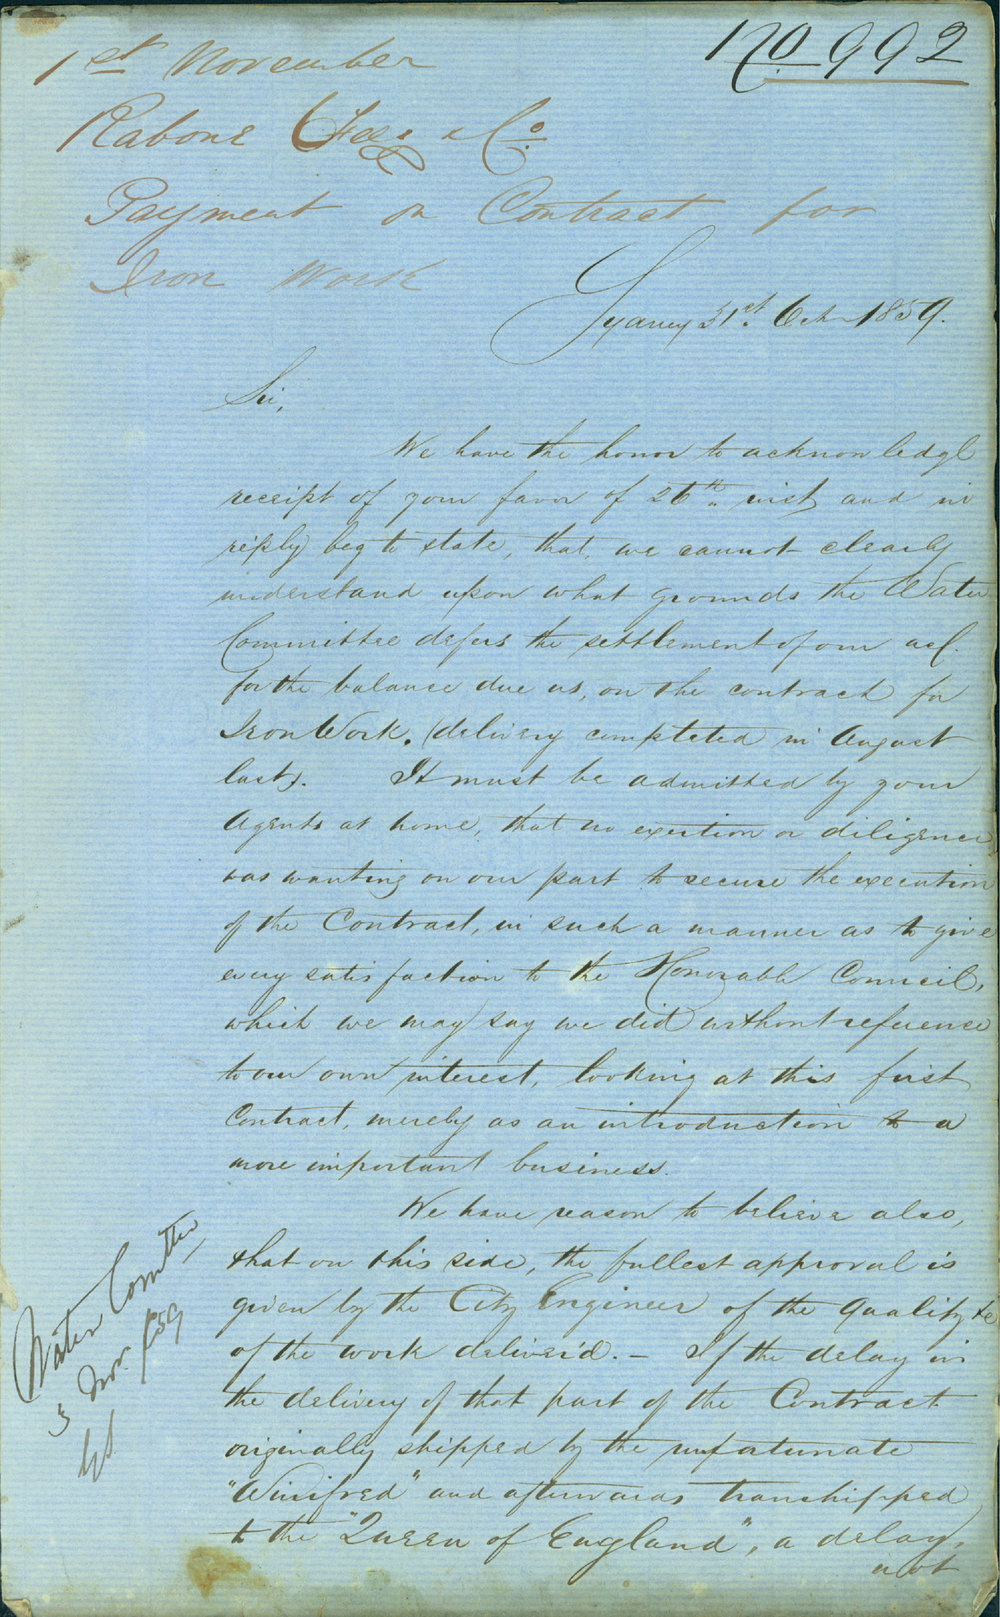 No 992
1st November
Rabone Feez & Co.
Payment on Contract for
Iron Work
Sydney 31st. Octr 1859.
Sir,
We have the honor to acknowledge
receipt of your favor of 26th. inst, and in
reply beg to state, that, we cannot clearly
understand upon what grounds the Water
Committee defers the settlement of our acc.
for the balance due us, on the contract for
Iron Work. (delivery completed in August
last). It must be admitted by your
Agents at home, that no exertion or diligence
was wanting on our part to secure the execution
of the Contract, in such a manner as to give
every satisfaction to the Honorable Council,
which we may say we did without reference
to our own interest, looking at this first
Contract, merely as an introduction to a
more important business.
We have reason to believe also,
that on this side, the fullest approval is
given by the City Engineer of the quality &c
of the work deliver'd. — If the delay in
the delivery of that part of the Contract
originally shipped by the unfortunate
"Winifred" and afterwards transhipped
to the "Queen of England", a delay,
not
Water Comttee
3 Nov. 1859